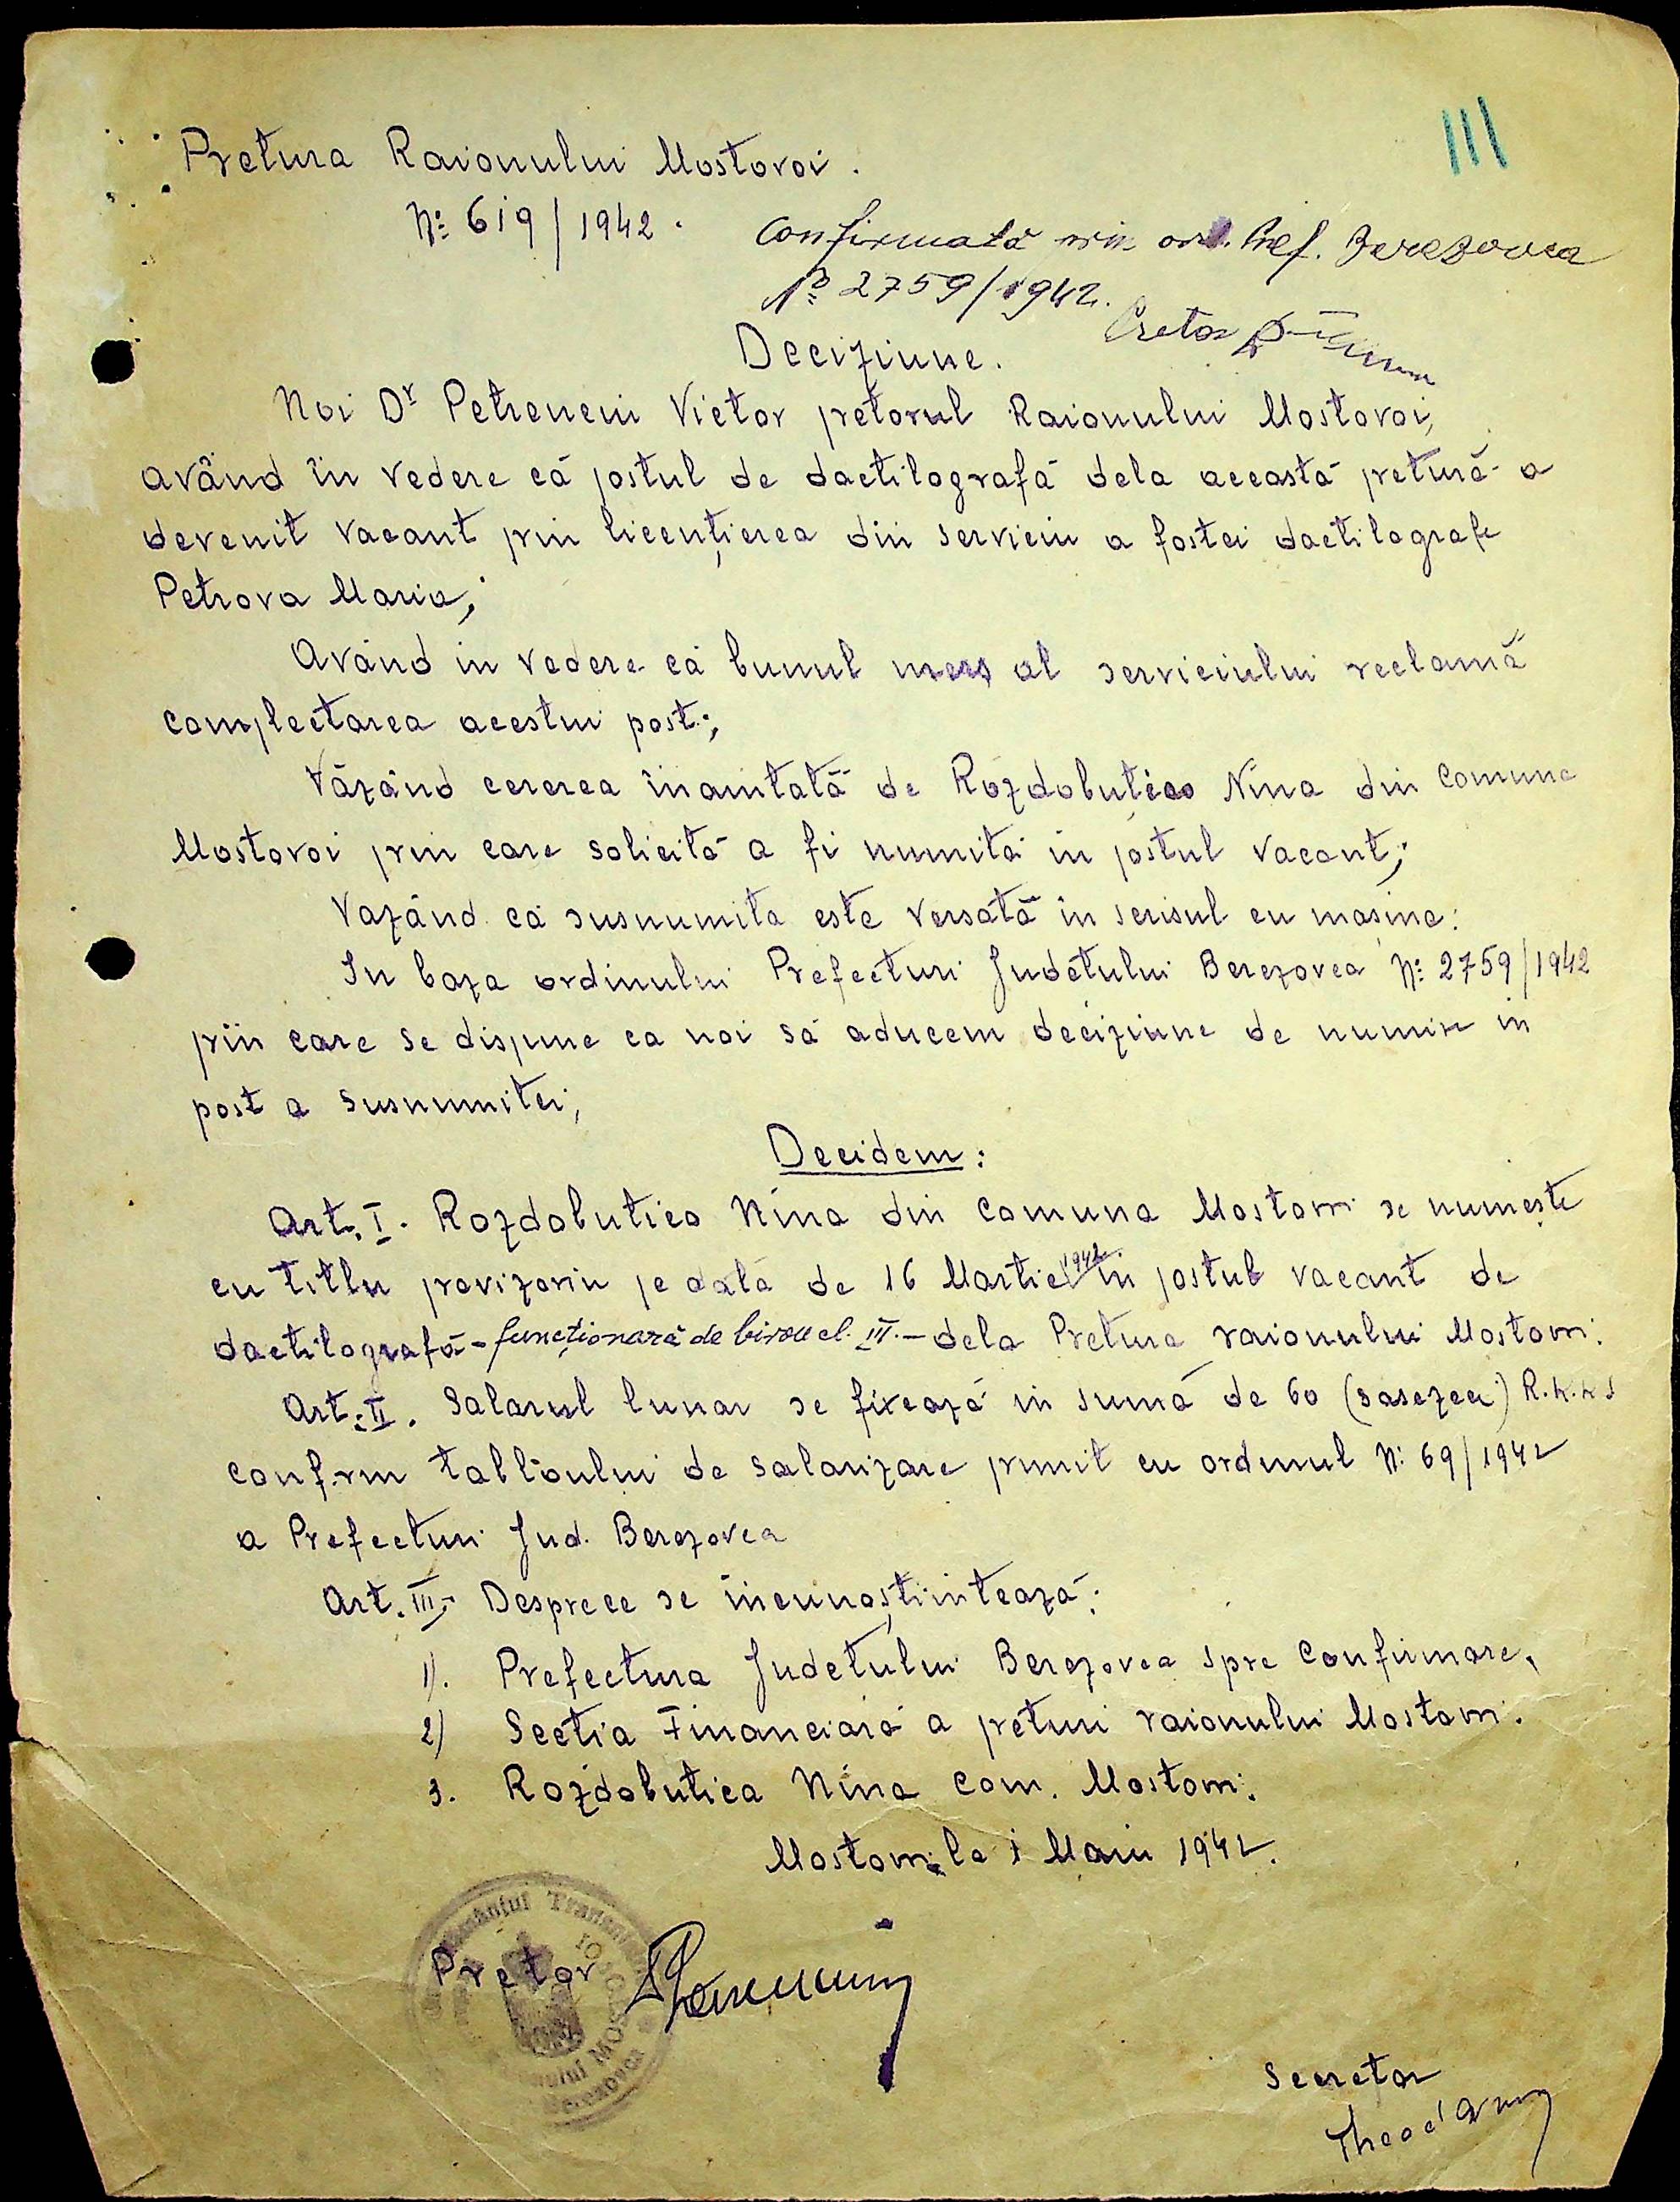 III
Pretura Raionului Mostovoi.
№ 619/1942.
Confirmată prin ord. Pref. Berezovca
№ 2759/1942.
Pretor
Deciziune.
Noi Dr Petrenciu Victor pretorul Raionului Mostovoi,
având în vedere că postul de dactilografă dela această pretură a
devenit vacant prin licențierea din serviciu a fostei dactilografe
Petrova Maria;
Având in vedere că bunul mers al serviciului reclamă
complectarea acestui post;
Văzând cererea înaintată de Rozdobutico Nina din Comuna
Mostovoi prin care solicită a fi numită in postul vacant;
Vazând că susnumita este versată în scrisul cu masina:
In baza ordinului Prefecturi Județului Berezovca №: 2759/1942
prin care se dispune ca noi să aducem deciziune de numire in
post a susnumitei;
Decidem:
Art. I. Rozdobutico Nina din comuna Mostovoi se numește
cu titlu provizoriu pe data de 16 Martie 1942. în postul vacant de
dactilografă - funcționară de birou cl. III. - dela Pretura raionului Mostovoi.
Art. II. Salarul lunar se fixează in sumă de 60 (sasezeci) R.K.K.S
conform tabloului de salarizare primit cu ordinul №: 69/1942
a Prefecturi Jud. Berezovca
Art. III. Despre ce se incunoștintează:
1). Prefectura Județului Berezovca spre Confirmare,
2) Secția Financiară a preturi raionului Mostovoi.
3. Rozdobutica Nina com. Mostovoi.
Mostovoi la 1 Maiu 1942.
Pretor
Secretar